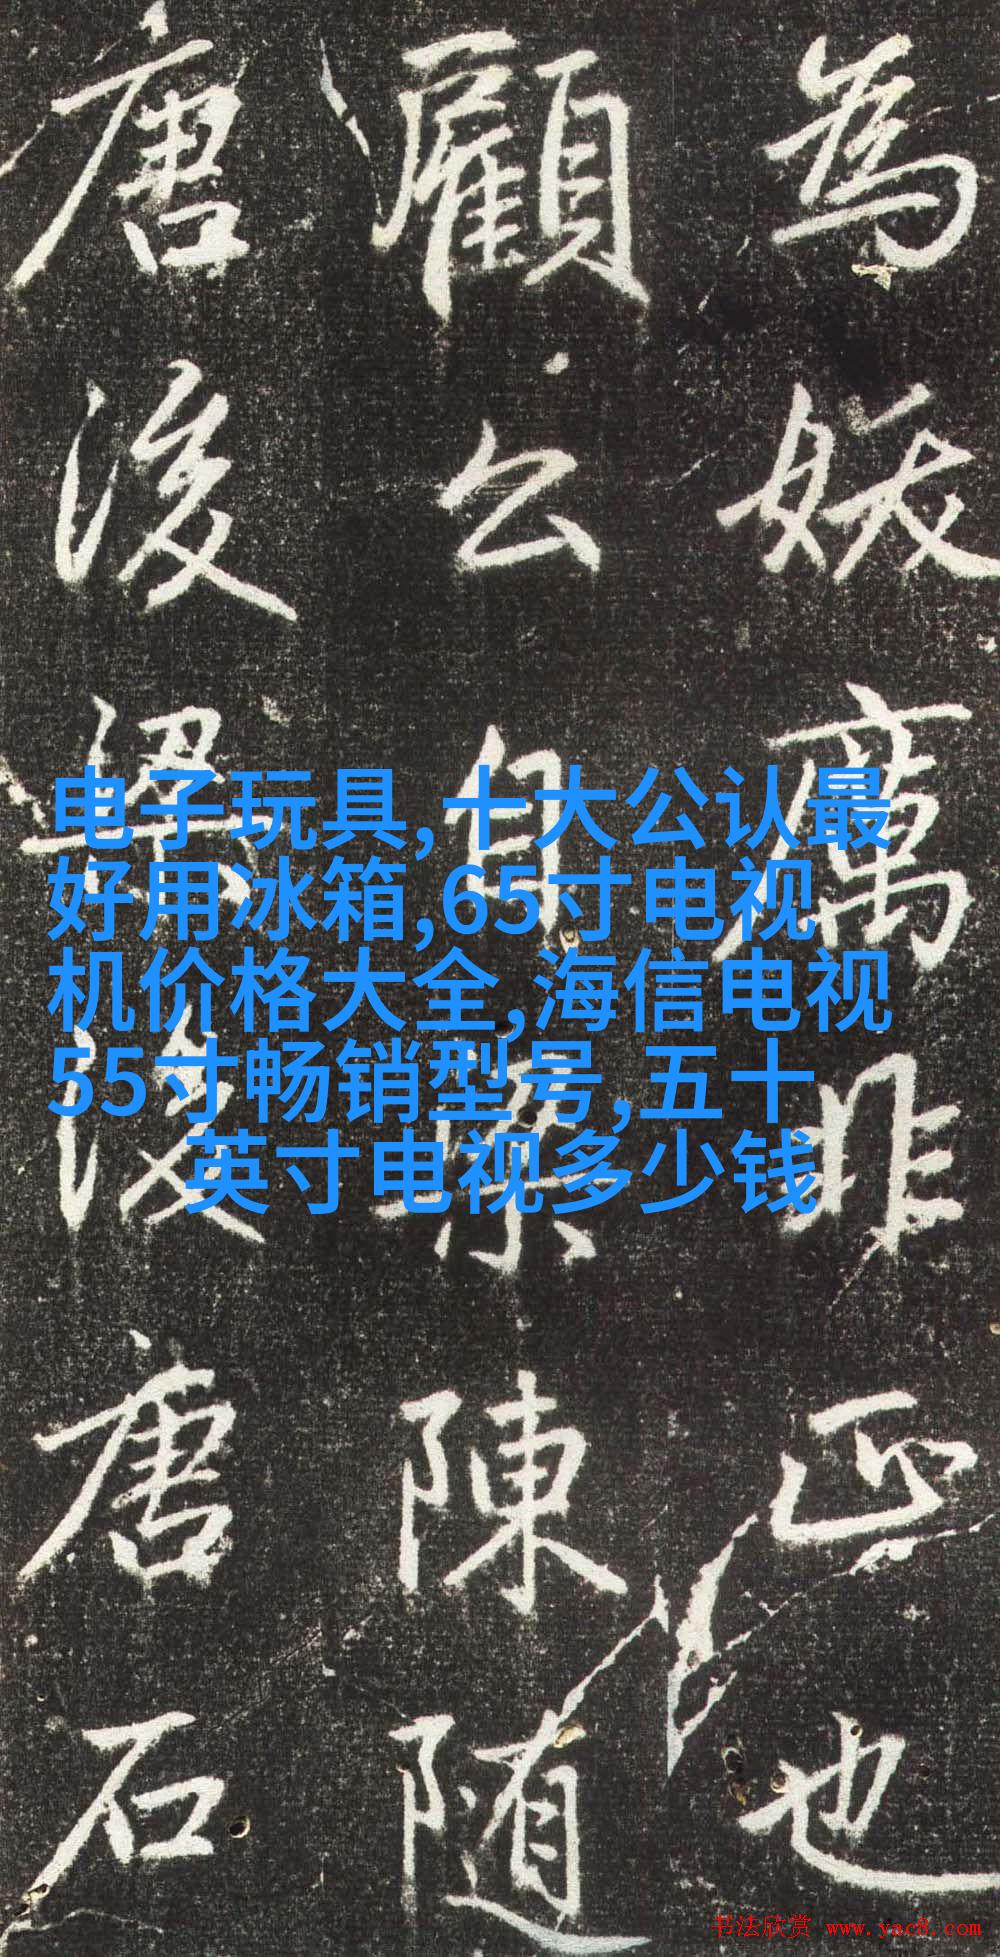 為妖厲非正也
顧公自陳隨
唐後梁後唐石
电子玩具,十大公认最
好用冰箱,65寸电视
机价格大全,海信电视
55寸畅销型号,五十
英寸电视多少钱
书法欣赏 www.yac8.com